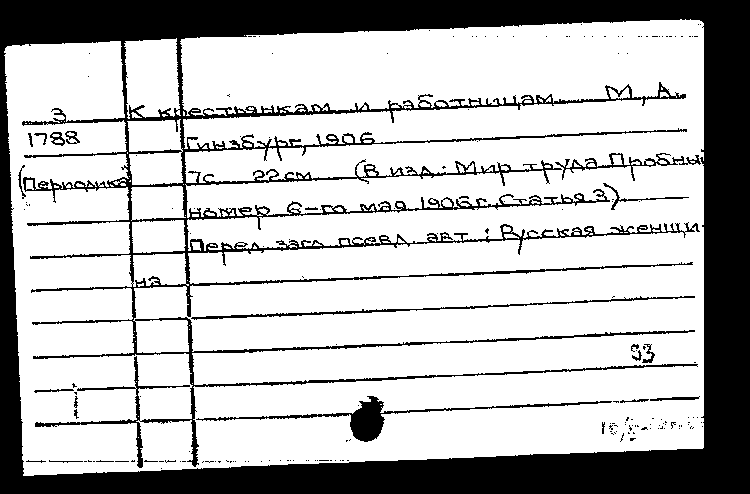 З К крестьянкам и работницам М., А.
1788 Гинзбург, 1906
(Периодика) 7с 22см (В изд.: Мир труда Пробный
номер 6-го мая 1906г. Статья 3)
Перед загл. псевд. авт.: Русская женщи-
на
93